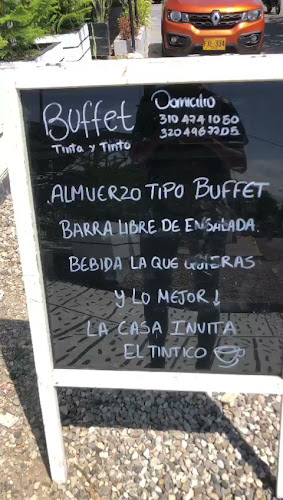 RENAULT
Buffet
Tinta y Tinto
Domicilio
310 474 10 50
320 496 77 05
ALMUERZO TIPO BUFFET
BARRA LIBRE DE ENSALADA.
BEBIDA LA QUE QUIERAS
Y LO MEJOR ↓
LA CASA INVITA
EL TINTICO